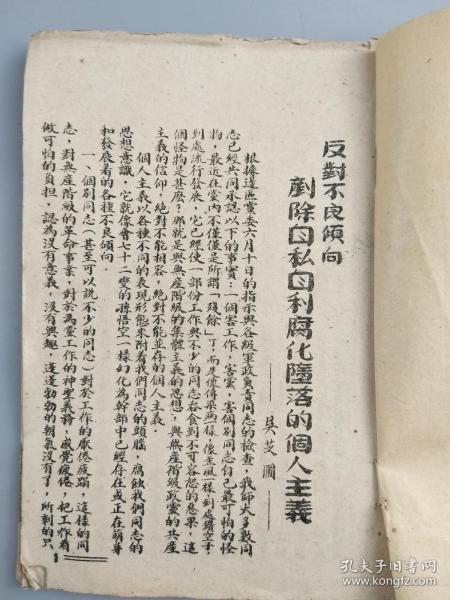 反對不良傾向
剷除自私自利腐化墮落的個人主義
——吳芝圃——
根據邊區黨委六月十日的指示與各級軍政負責同志的檢查，我師大多數同
志已經共同承認以下的事實：一個害工作，害黨，害個別同志自己最可怕的怪
物，最近在黨內不僅僅是所謂「殘餘」了，而是像傳染病一樣，像歪風一樣，到處鑽空子，
到處流行發展，它已經使一部份工作與不少的同志吞食到不可容忍的惡果，這
個怪物是甚麽？那就是與無產階級的集體主義的思想，與無產階級政黨的共產
主義的信仰，絕對不能相容，絕對不能並存的個人主義。
個人主義以各種不同的表現形態來附着我們同志的頭腦，腐蝕我們同志的
思想意識，它就像會七十二變的孫悟空一樣幻化為幹部中已經存在或正在萌芽
和發展着的各種不良傾向。
一、個別同志（甚至可以說不少的同志）對於工作的厭倦疲蹋，這樣的同
志，對無產階級的革命事業，對於為黨工作的神聖義務，感覺疲倦，把工作看
做可怕的負担，認為沒有意義，沒有興趣，蓬蓬勃勃的朝氣沒有了，所剩的只
1
孔夫子旧书网
book.kongfz.com